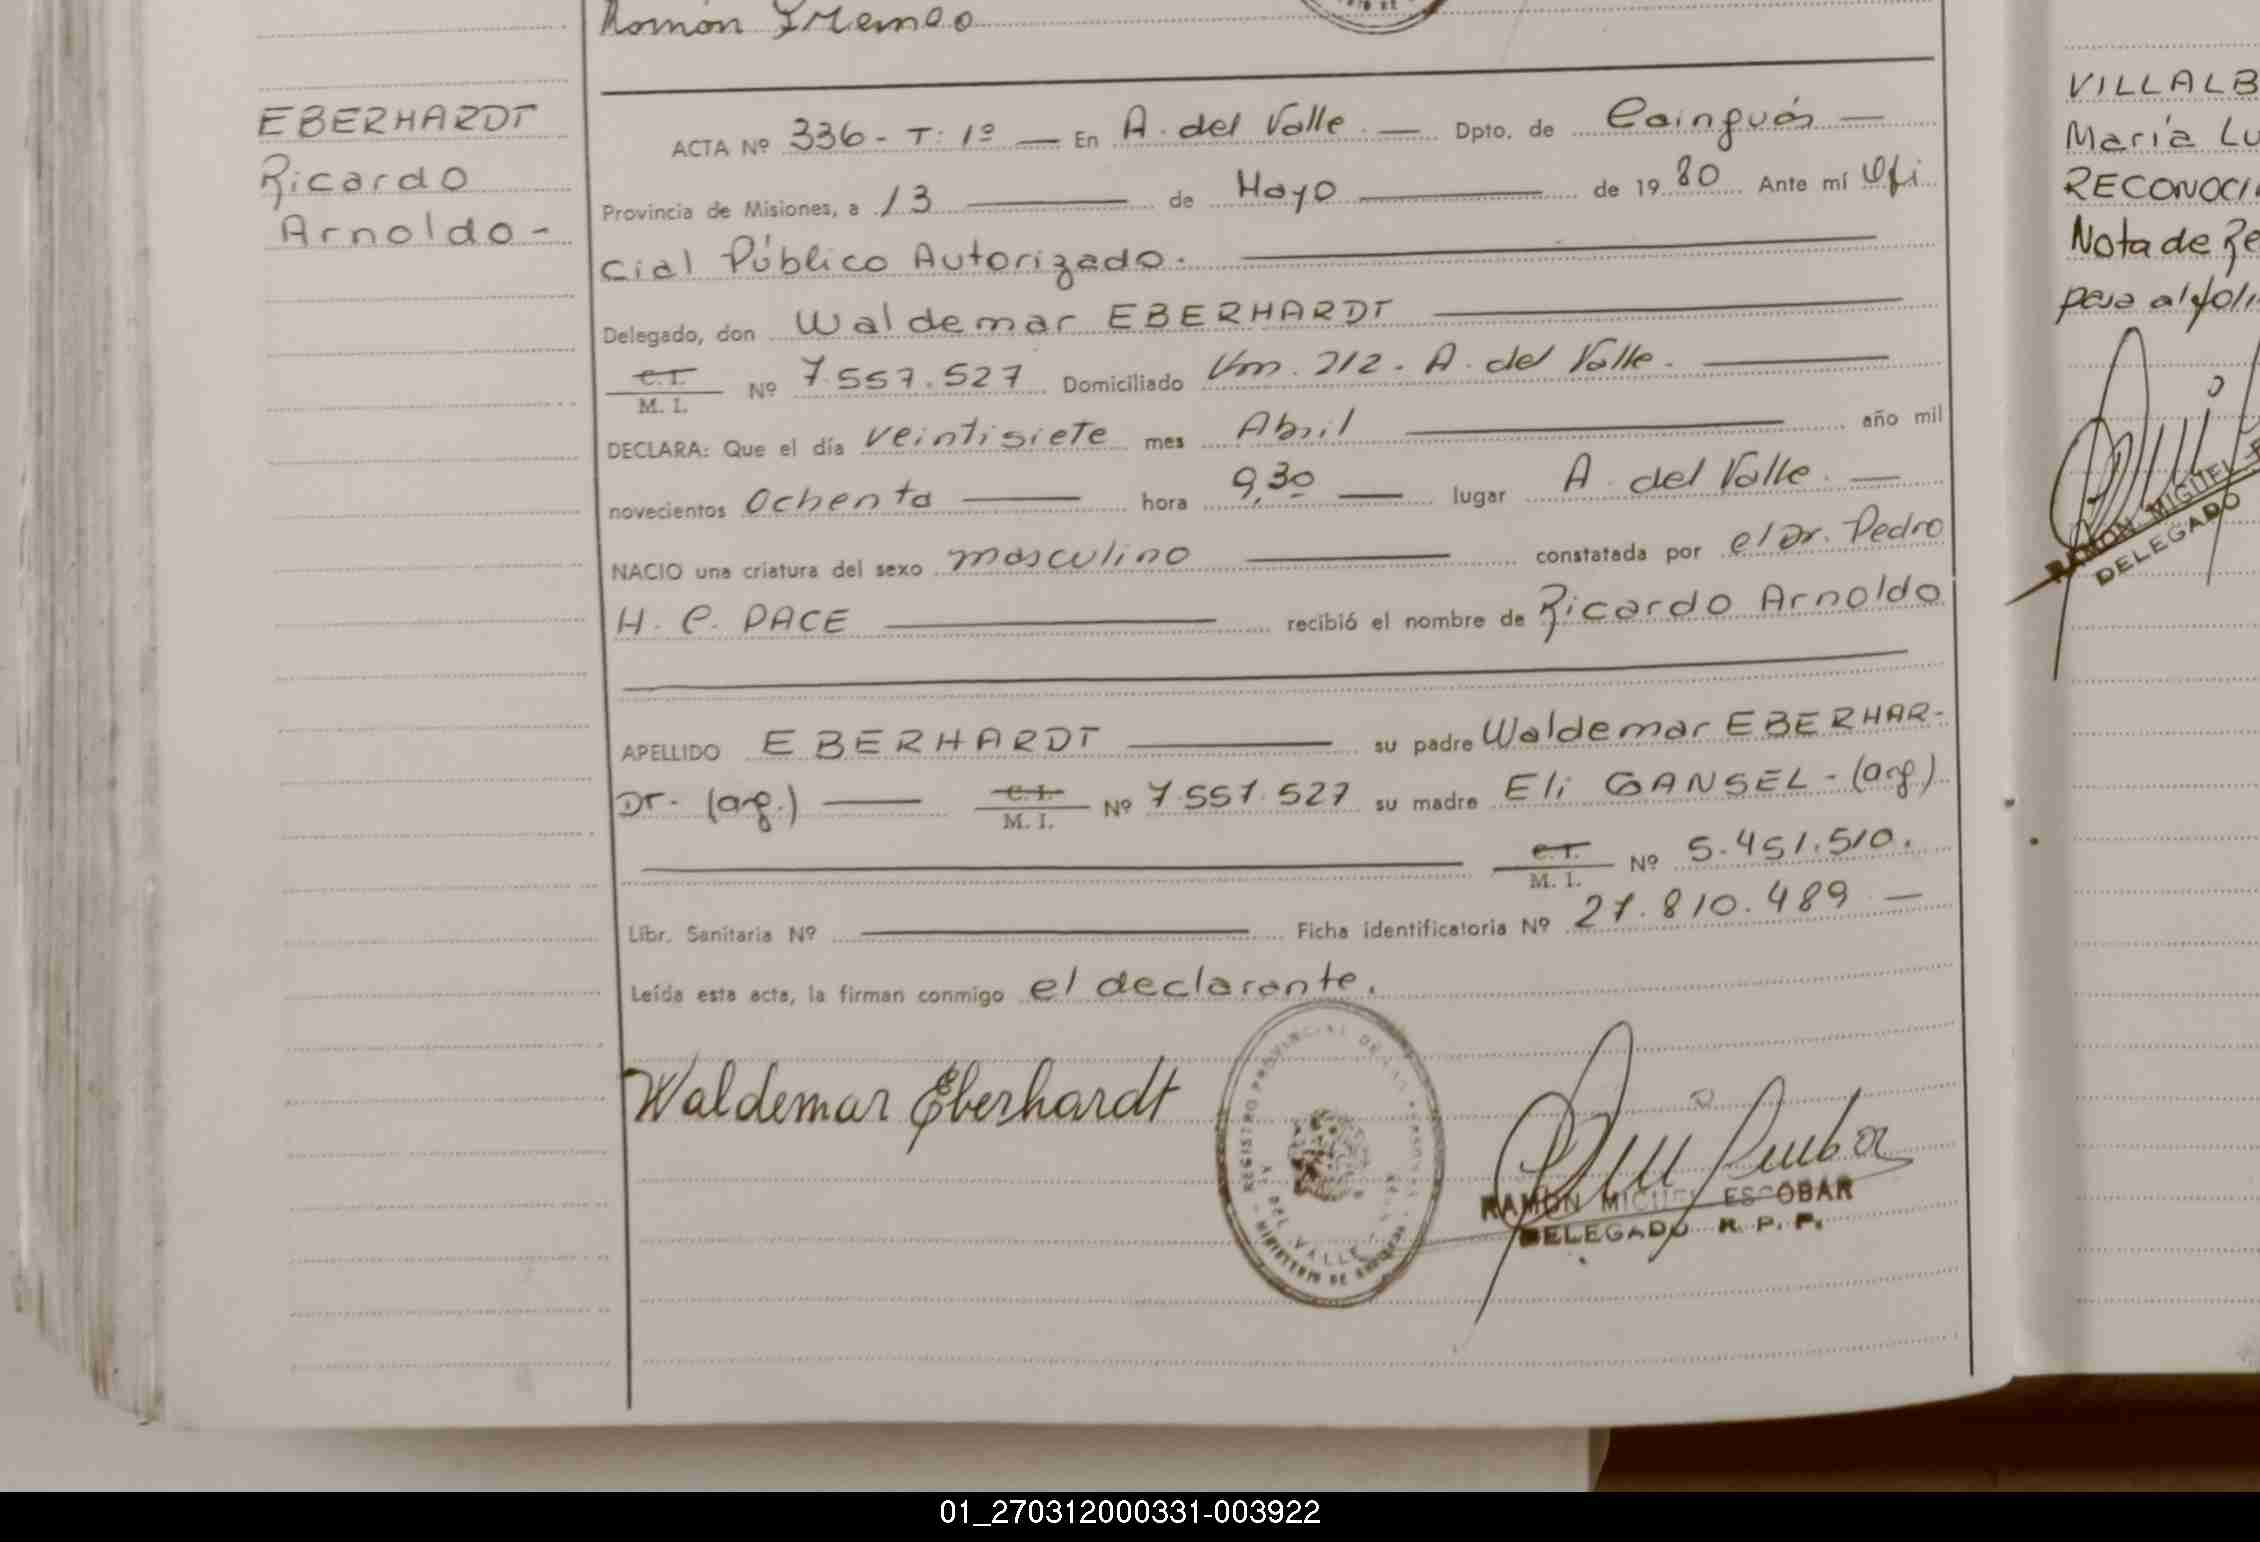 Ramón Irineo
EBERHARDT
Ricardo
Arnoldo-
ACTA Nº 336- T: 1º — En A. del Valle — Dpto. de Cainguás —
Provincia de Misiones, a 13 — de Mayo — de 19 80 Ante mí Ofi
cial Público Autorizado.
Delegado, don Waldemar EBERHARDT
C.I. M. I. Nº 7.557.527 Domiciliado Km. 212. A. del Valle.
DECLARA: Que el día veintisiete mes Abril — año mil
novecientos ochenta — hora 9,30 — lugar A. del Valle. —
NACIO una criatura del sexo masculino — constatada por el Dr. Pedro
H. C. PACE — recibió el nombre de Ricardo Arnoldo
APELLIDO EBERHARDT — su padre Waldemar EBERHAR-
DT- (arg.) — C. I. M. I. Nº 7.557.527 su madre Eli GANSEL - (arg).
C.I. M. I. Nº 5.451.510.
Libr. Sanitaria Nº — Ficha identificatoria Nº 27.810.489 —
Leída esta acta, la firman conmigo el declarante.
Waldemar Eberhardt
REGISTRO PROVINCIAL DE LAS PERSONAS
DEL VALLE
MINISTERIO DE
RAMON MIGUEL ESCOBAR
DELEGADO R. P. P.
VILLALB
María Lu
RECONOCI
Nota de Re
pasa al foli
RAMON MIGUEL E
DELEGADO
01_270312000331-003922